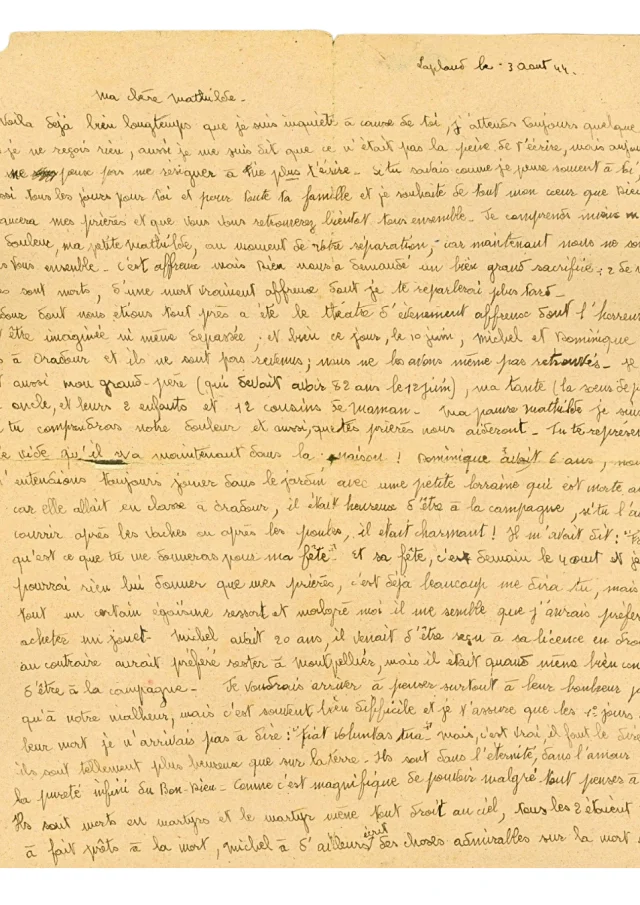 le 3 Aout 44.
Ma chère Mathilde -
Voila déjà bien longtemps que je suis inquiète à cause de toi, j'attends toujours quelque
je ne reçois rien, aussi je me suis dit que ce n'était pas la peine de t'écrire, mais aujou
ne peux pas me résigner à ne plus t'écrire - Si tu savais comme je pense souvent à toi,
tous les jours pour toi et pour toute ta famille et je souhaite de tout mon cœur que Dieu
mes prières et que vous vous retrouverez bientôt tous ensemble - Je comprends mieux m
douleur, ma petite Mathilde, au moment de votre séparation, car maintenant nous ne so
ensemble - C'est affreux mais Dieu nous a demandé un bien grand sacrifice : 2 de n
sont morts, d'une mort vraiment affreuse dont je te reparlerai plus tard -
dont nous étions tout près a été le théatre d'évènement affreux dont l'horreur
être imaginée ni même dépassée, et bien ce jour, le 10 juin, Michel et Dominique
à Oradour et ils ne sont pas revenus ; nous ne les avons même pas retrouvés - Je
aussi mon grand-père (qui devait avoir 82 ans le 12 juin), ma tante (la soeur de p
oncle, et leurs 2 enfants et 12 cousins de Maman - Ma pauvre Mathilde je suis
tu comprendras notre douleur et aussi, que tes prières nous aideront - Tu te représen
vide qu'il y a maintenant dans la maison ! Dominique avait 6 ans, nou
l'entendions toujours jouer dans le jardin avec une petite lorraine qui est morte a
car elle allait en classe à Oradour, il était heureux d'être à la campagne, si tu l'a
courrir après les vaches ou après les poules, il était charmant ! Il m'avait dit :
qu'est ce que tu me donneras pour ma fête" - Et sa fête, c'est demain le 4 aout et je
pourrai rien lui donner que mes prières, c'est déjà beaucoup me dira tu, mais
tout un certain égoïsme ressort et malgré moi il me semble que j'aurais préfér
acheter un jouet - Michel avait 20 ans, il venait d'être reçu à sa licence en droi
au contraire aurait préféré rester à Montpellier, mais il était quand même bien con
d'être à la campagne - Je voudrais arriver à penser surtout à leur bonheur p
qu'à notre malheur, mais c'est souvent bien difficile et je t'assure que les 1ers jours
leur mort je n'arrivais pas à dire : "Fiat voluntas tua" - mais, c'est vrai, il faut le dire
ils sont tellement plus heureux que sur la terre - Ils sont dans l'éternité, dans l'amour
la pureté infini du Bon-Dieu - Comme c'est magnifique de pouvoir malgré tout penser à
Ils sont morts en martyrs et le martyr mène tout droit au ciel, tous les 2 étaient
à fait prêts à la mort, Michel à d'ailleurs écrit des choses admirables sur la mort